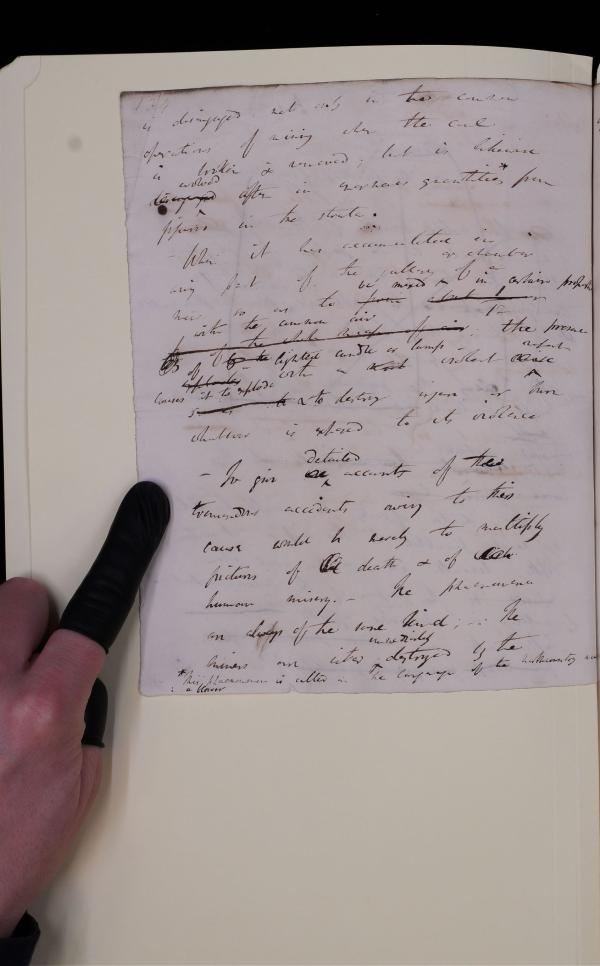 is disengaged not only in the common
operations of mining when the coal
is broken & removed; but is likewise
evolved
often in enormous quantities* from
fissures in the strata.
When it has accumulated in
any part of the gallery or chamber
of a
mine so as to be mixed in certain proportions
with the common air the presence
of a lighted candle or lamp
causes it to explode with a violent
& to destroy injure or burn
whatever is exposed to its violence
– To give detailed accounts of these
tremendous accidents owing to this
cause would be merely to multiply
pictures of death & of
human misery. – The phaenomena
are always of the same kind; – The
miners are either immediately destroyed by the
* This phaenomenon is called in the language of the
a blower